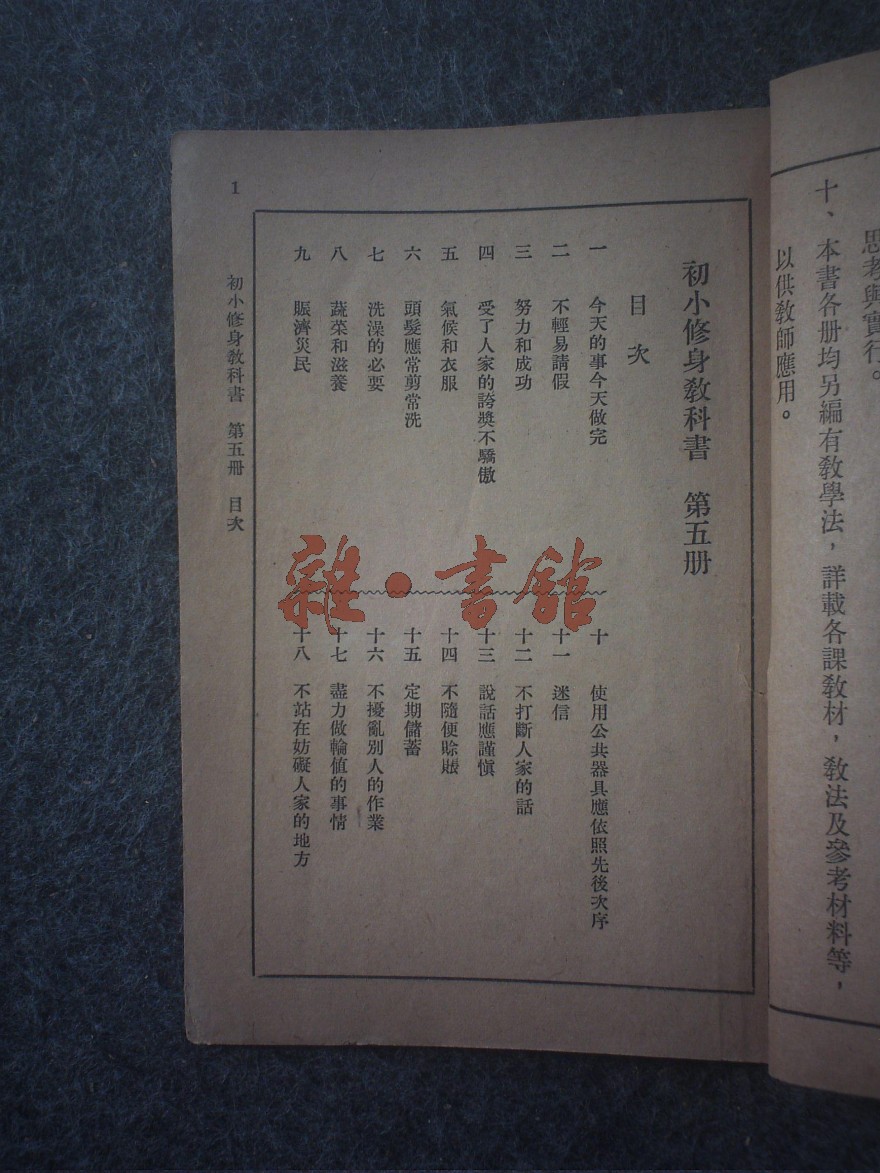 思考與實行。
十、本書各册均另編有教學法，詳載各課教材，教法及參考材料等，
以供教師應用。
初小修身教科書　第五册
目次
一　今天的事今天做完
二　不輕易請假
三　努力和成功
四　受了人家的誇奬不驕傲
五　氣候和衣服
六　頭髮應常剪常洗
七　洗澡的必要
八　蔬菜和滋養
九　賑濟災民
十　使用公共器具應依照先後次序
十一　迷信
十二　不打斷人家的話
十三　說話應謹愼
十四　不隨便賒賬
十五　定期儲蓄
十六　不擾亂別人的作業
十七　盡力做輪值的事情
十八　不站在妨礙人家的地方
初小修身教科書　第五册　目次
1
雜·書館